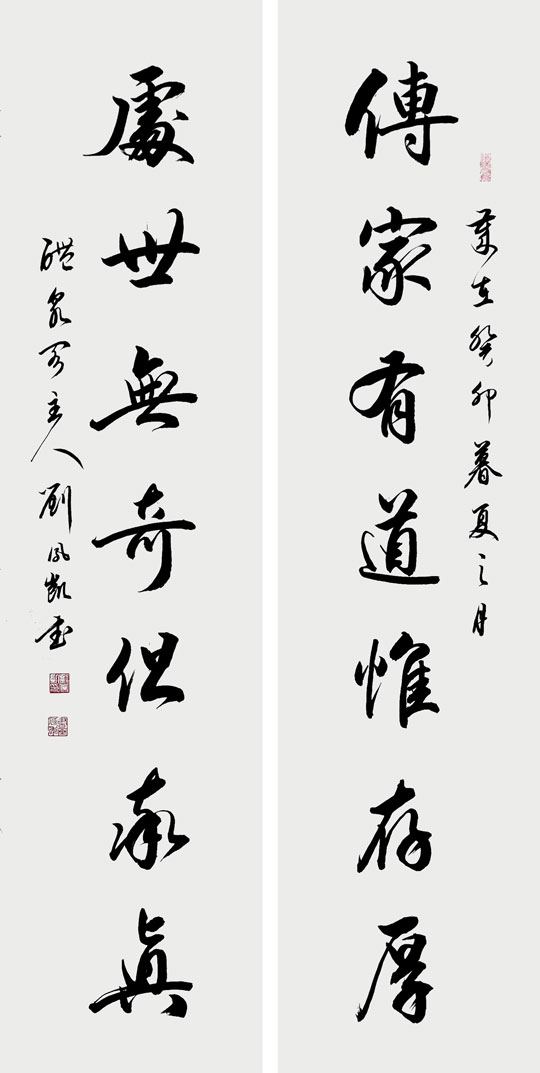 歲在癸卯暮夏之月
傳家有道惟存厚
處世無奇但率真
醴泉閣主人劉鳳凱書